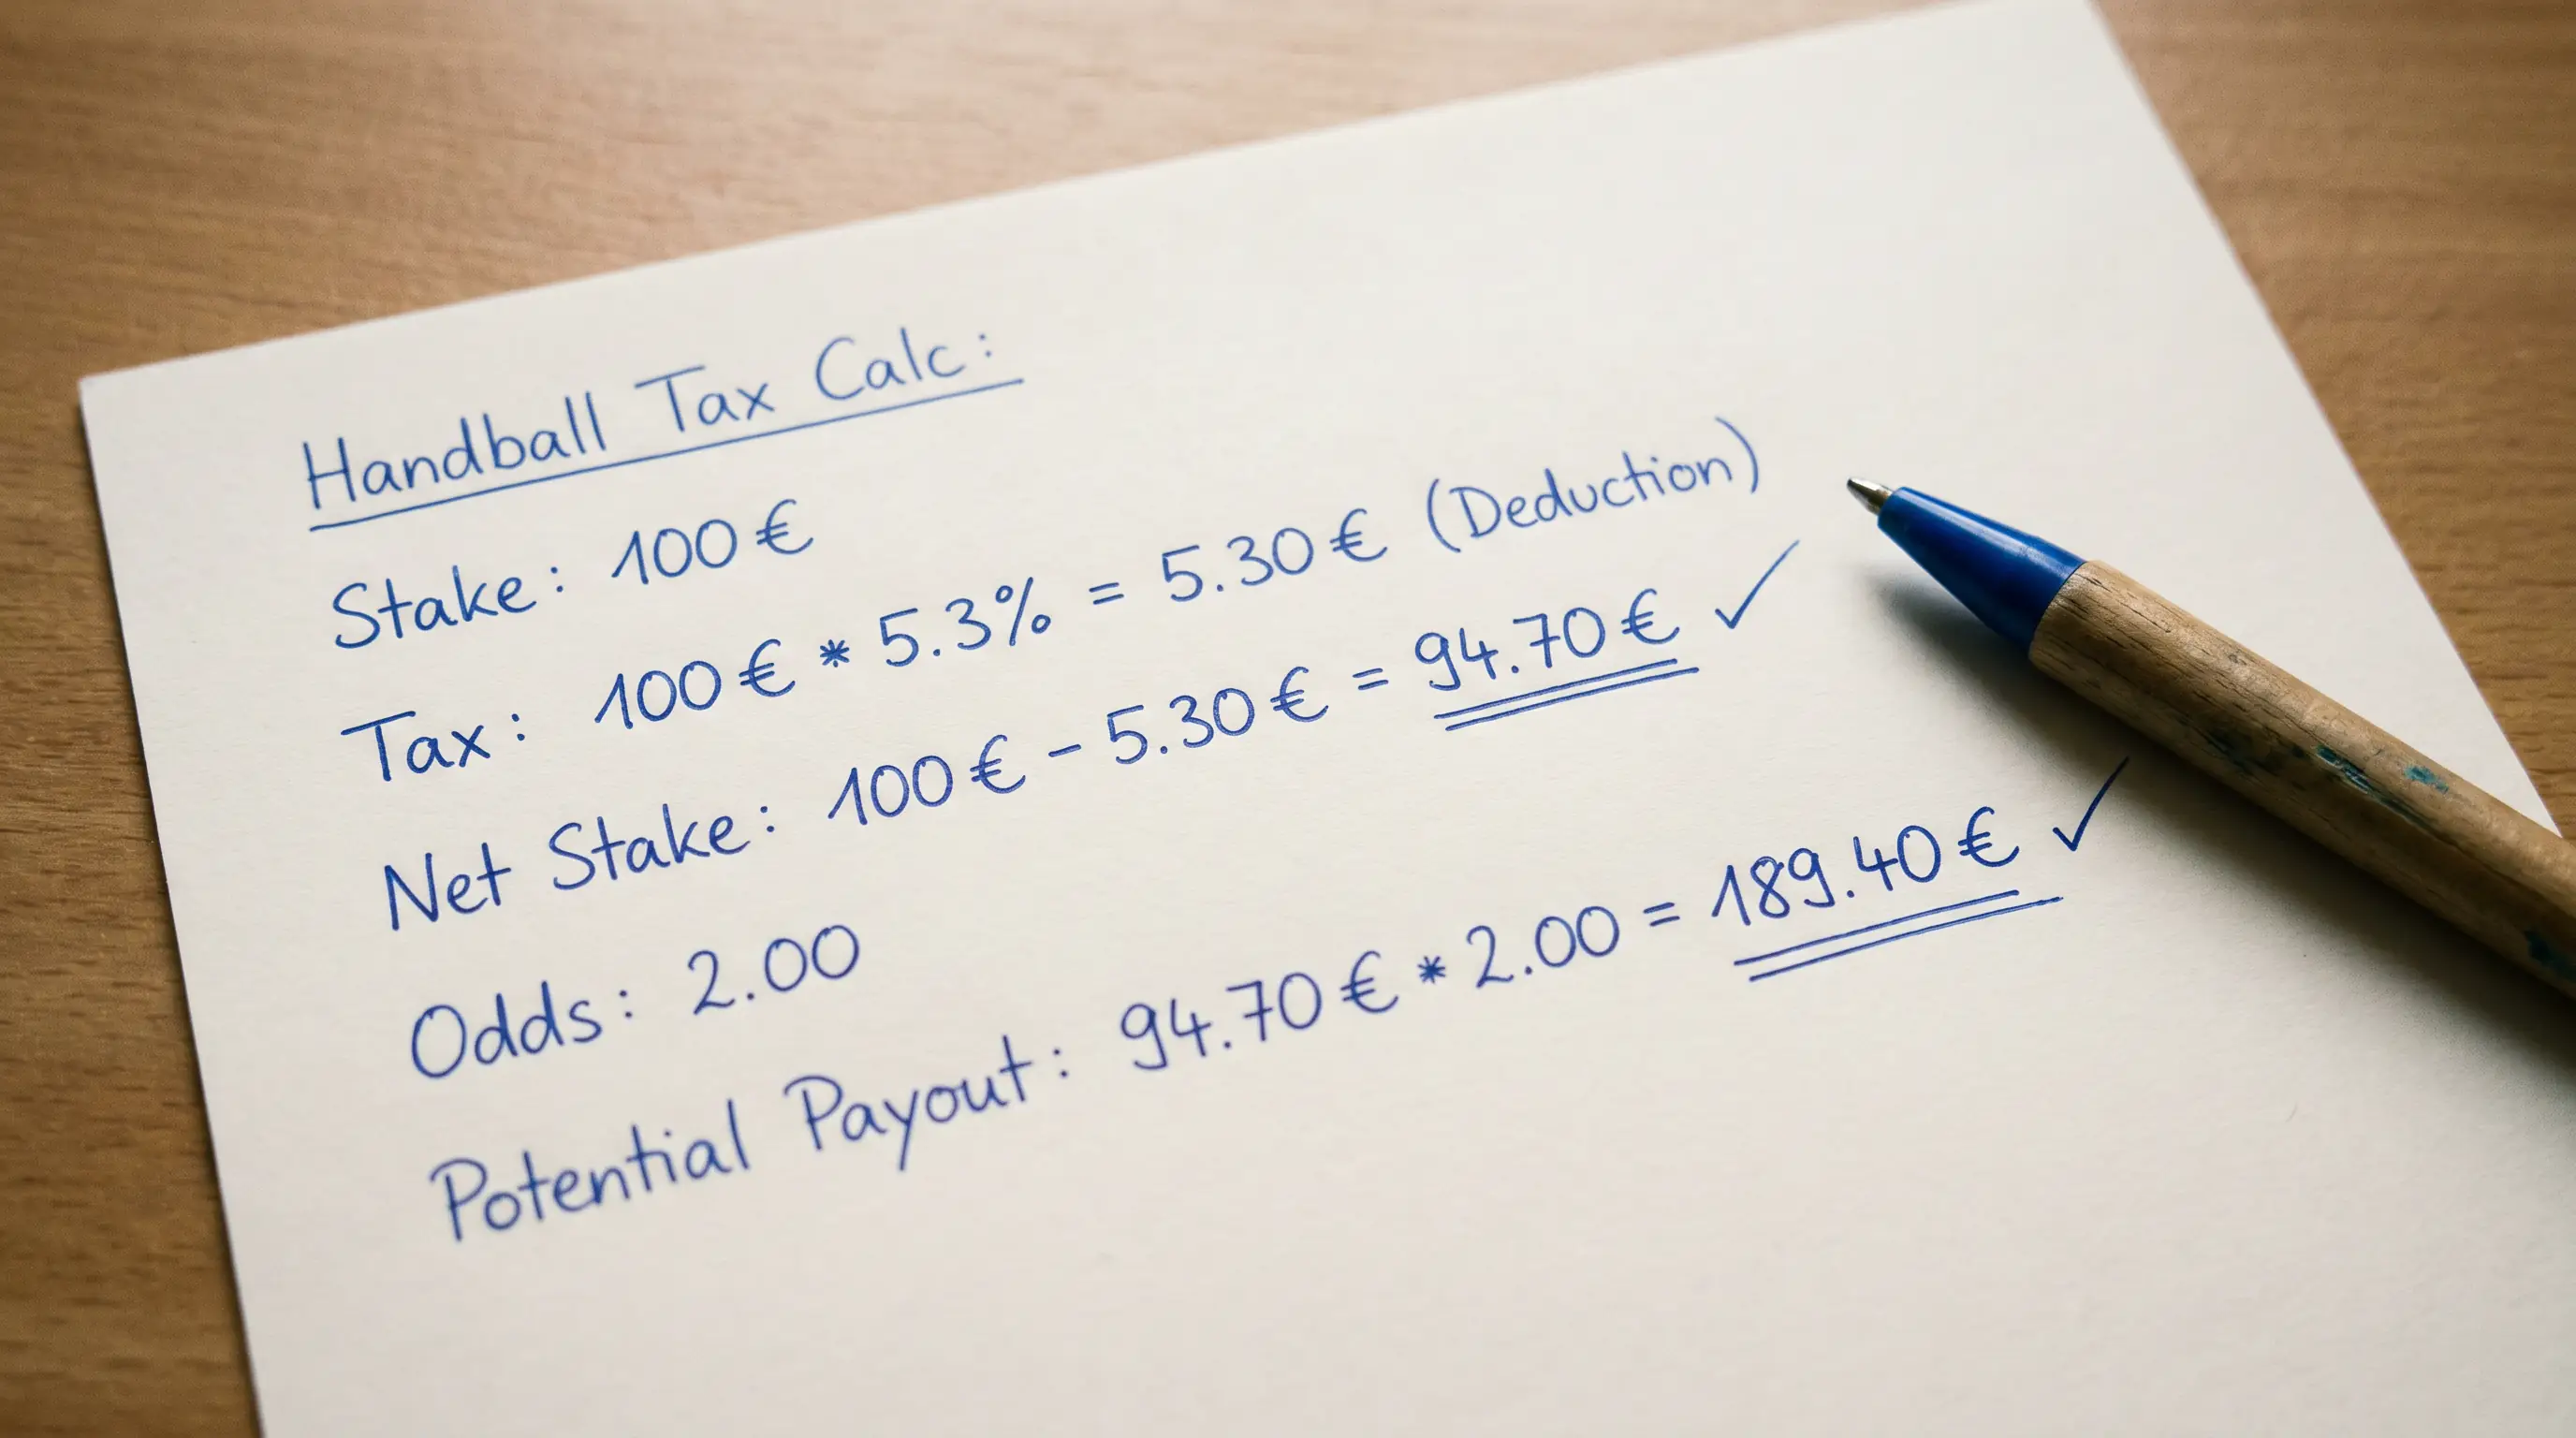 Handball Tax Calc:
Stake: 100 €
Tax: 100 € * 5.3% = 5.30 € (Deduction)
Net Stake: 100 € - 5.30 € = 94.70 € ✓
Odds: 2.00
Potential Payout: 94.70 € * 2.00 = 189.40 € ✓